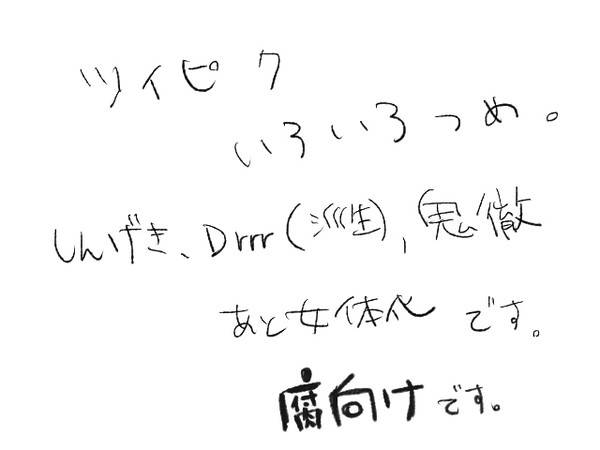 ツイピク
いろいろつめ。
しんげき、Drrr(派生),鬼徹
あと女体化 です。
腐向けです。